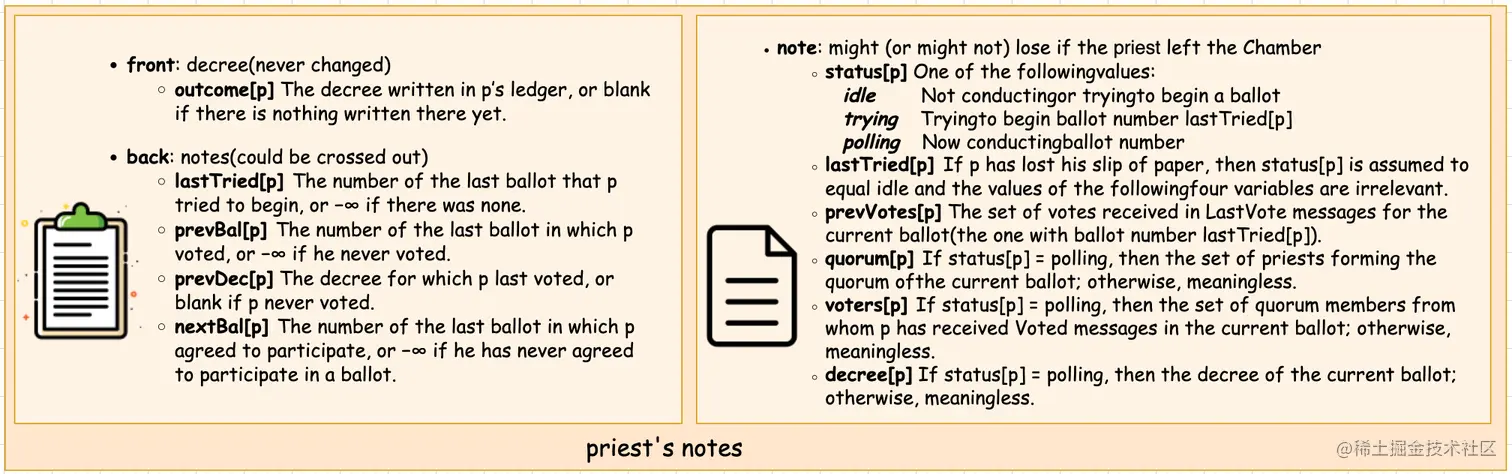 • front: decree(never changed)
◦ outcome[p] The decree written in p’s ledger, or blank
if there is nothing written there yet.
• back: notes(could be crossed out)
◦ lastTried[p] The number of the last ballot that p
tried to begin, or −∞ if there was none.
◦ prevBal[p] The number of the last ballot in which p
voted, or −∞ if he never voted.
◦ prevDec[p] The decree for which p last voted, or
blank if p never voted.
◦ nextBal[p] The number of the last ballot in which p
agreed to participate, or −∞ if he has never agreed
to participate in a ballot.
• note: might (or might not) lose if the priest left the Chamber
◦ status[p] One of the followingvalues:
idle Not conductingor tryingto begin a ballot
trying Tryingto begin ballot number lastTried[p]
polling Now conductingballot number
◦ lastTried[p] If p has lost his slip of paper, then status[p] is assumed to
equal idle and the values of the followingfour variables are irrelevant.
◦ prevVotes[p] The set of votes received in LastVote messages for the
current ballot(the one with ballot number lastTried[p]).
◦ quorum[p] If status[p] = polling, then the set of priests forming the
quorum ofthe current ballot; otherwise, meaningless.
◦ voters[p] If status[p] = polling, then the set of quorum members from
whom p has received Voted messages in the current ballot; otherwise,
meaningless.
◦ decree[p] If status[p] = polling, then the decree of the current ballot;
otherwise, meaningless.
priest's notes
@稀土掘金技术社区